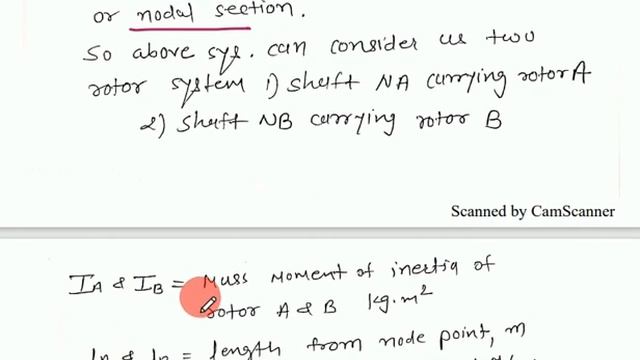 or nodal section.
So above sys. can consider as two
rotor system 1) shaft NA carrying rotor A
2) shaft NB carrying rotor B
Scanned by CamScanner
IA & IB = Mass moment of inertia of
rotor A & B kg.m²
= length from node point, m